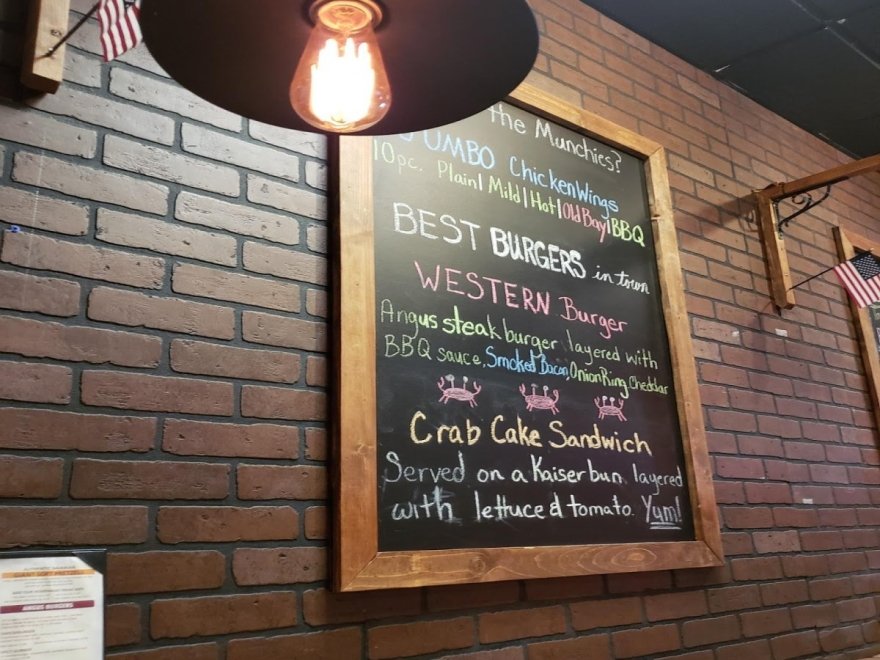 the Munchies?
JUMBO Chicken Wings
10pc. Plain | Mild | Hot | Old Bay | BBQ
BEST BURGERS in town
WESTERN Burger
Angus steak burger layered with
BBQ sauce, Smoked Bacon, Onion Ring, Cheddar
Crab Cake Sandwich
Served on a Kaiser bun layered
with lettuce & tomato. Yum!
GIANT SOFT PRETZEL
ANGUS BURGERS